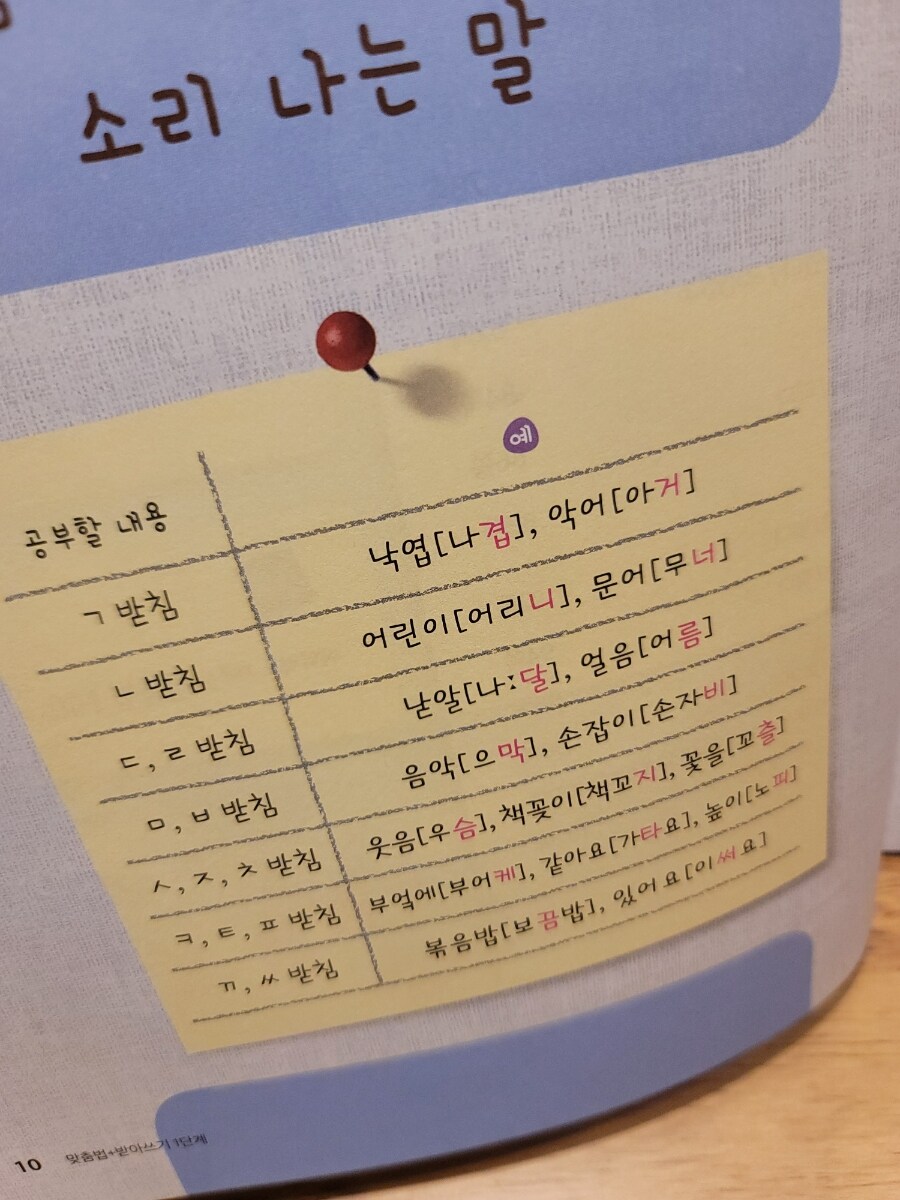 소리 나는 말
예
공부할 내용
ㄱ 받침 낙엽[나겹], 악어[아거]
ㄴ 받침 어린이[어리니], 문어[무너]
ㄷ, ㄹ 받침 낟알[나ː달], 얼음[어름]
ㅁ, ㅂ 받침 음악[으막], 손잡이[손자비]
ㅅ, ㅈ, ㅊ 받침 웃음[우슴], 책꽂이[책꼬지], 꽃을[꼬츨]
ㅋ, ㅌ, ㅍ 받침 부엌에[부어케], 같아요[가타요], 높이[노피]
ㄲ, ㅆ 받침 볶음밥[보끔밥], 있어요[이써요]
10 맞춤법+받아쓰기 1단계